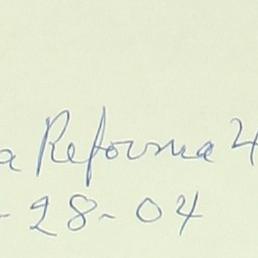 a Reforma 4
-28-04